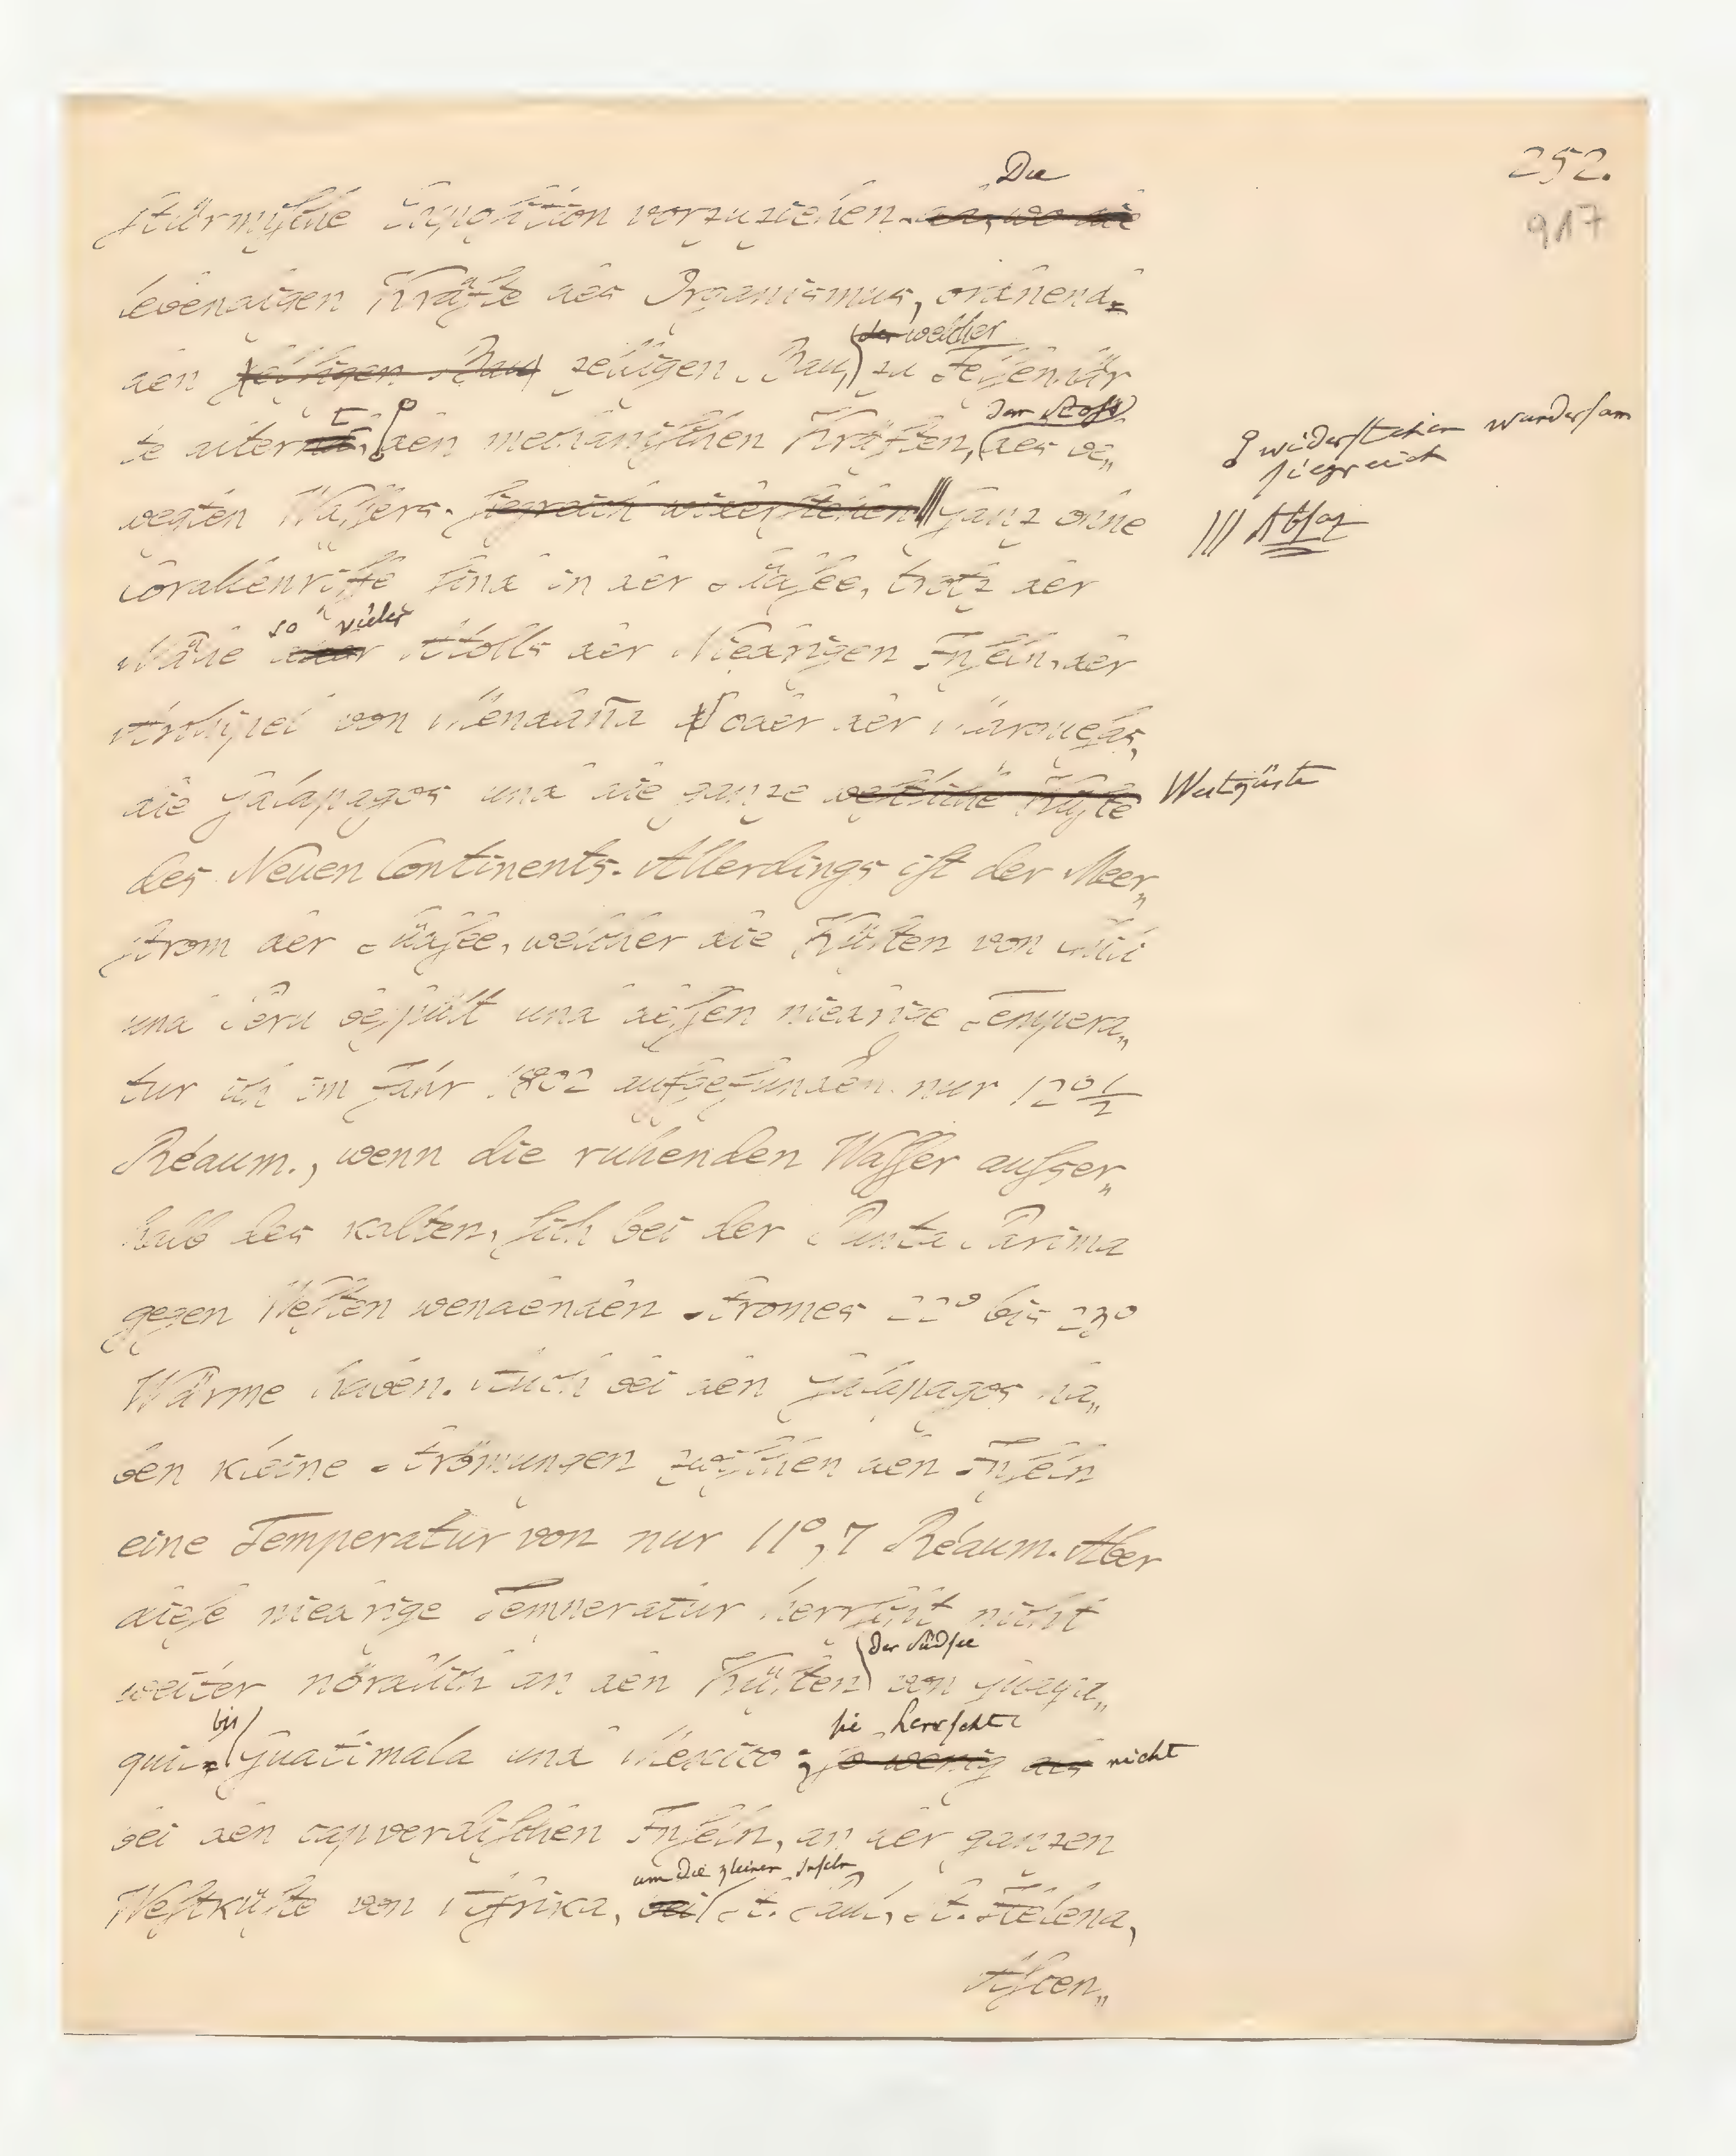 252.
917
Die
stürmische Exposition vorzuziehen. da, wo die
lebendigen Kräfte des Organismus, ordnend
der welcher
den zelligen Bau zelligen Bau, zu Felsenhär
t
der Stoß
te altern, den mechanischen Kräften, des be„
widerstehen wundersam
siegreich
wegten Wassers. siegreich widerstehen Ganz ohne
||| Absaz
Corallenriffe sind in der Südsee, trotz der
so vieler
Nähe der Atolls der Niedrigen Inseln, der
Archipel von Mendaña oder der Marquesas,
die Galapagos und die ganze westliche Küste Westküste
des Neuen Continents. Allerdings ist der Meer„
strom der Südsee, welcher die Küsten von Chili
und Peru bespült und dessen niedrige Tempera„
tur ich im Jahr 1802 aufgefunden nur 12°½
Réaum., wenn die ruhenden Wasser ausser„
halb des kalten, sich bei der Punta Parima
gegen Westen wendenden Stromes 22° bis 23°
Wärme haben. Auch bei den Galapagos ha„
ben kleine Strömungen zwischen den Inseln
eine Temperatur von nur 11°,7 Réaum. Aber
diese niedrige Temperatur herrscht nicht
der Südsee
weiter nördlich an den Küsten von Guaya„
bis
sie herrscht
quil Guatimala und Mexico; so wenig als nicht
bei den capverdischen Inseln, an der ganzen
um die kleinen Inseln
Westküste von Afrika, bei St. Paul, St. Helena,
Ascen„